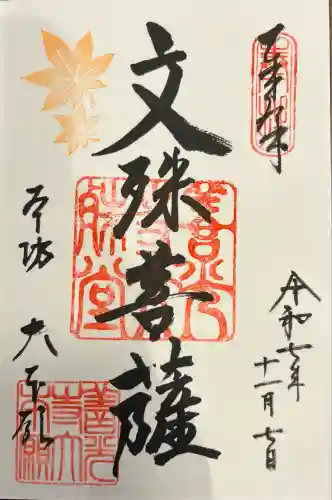 奉拝
文殊菩薩
令和七年
十一月七日
本坊 大本願